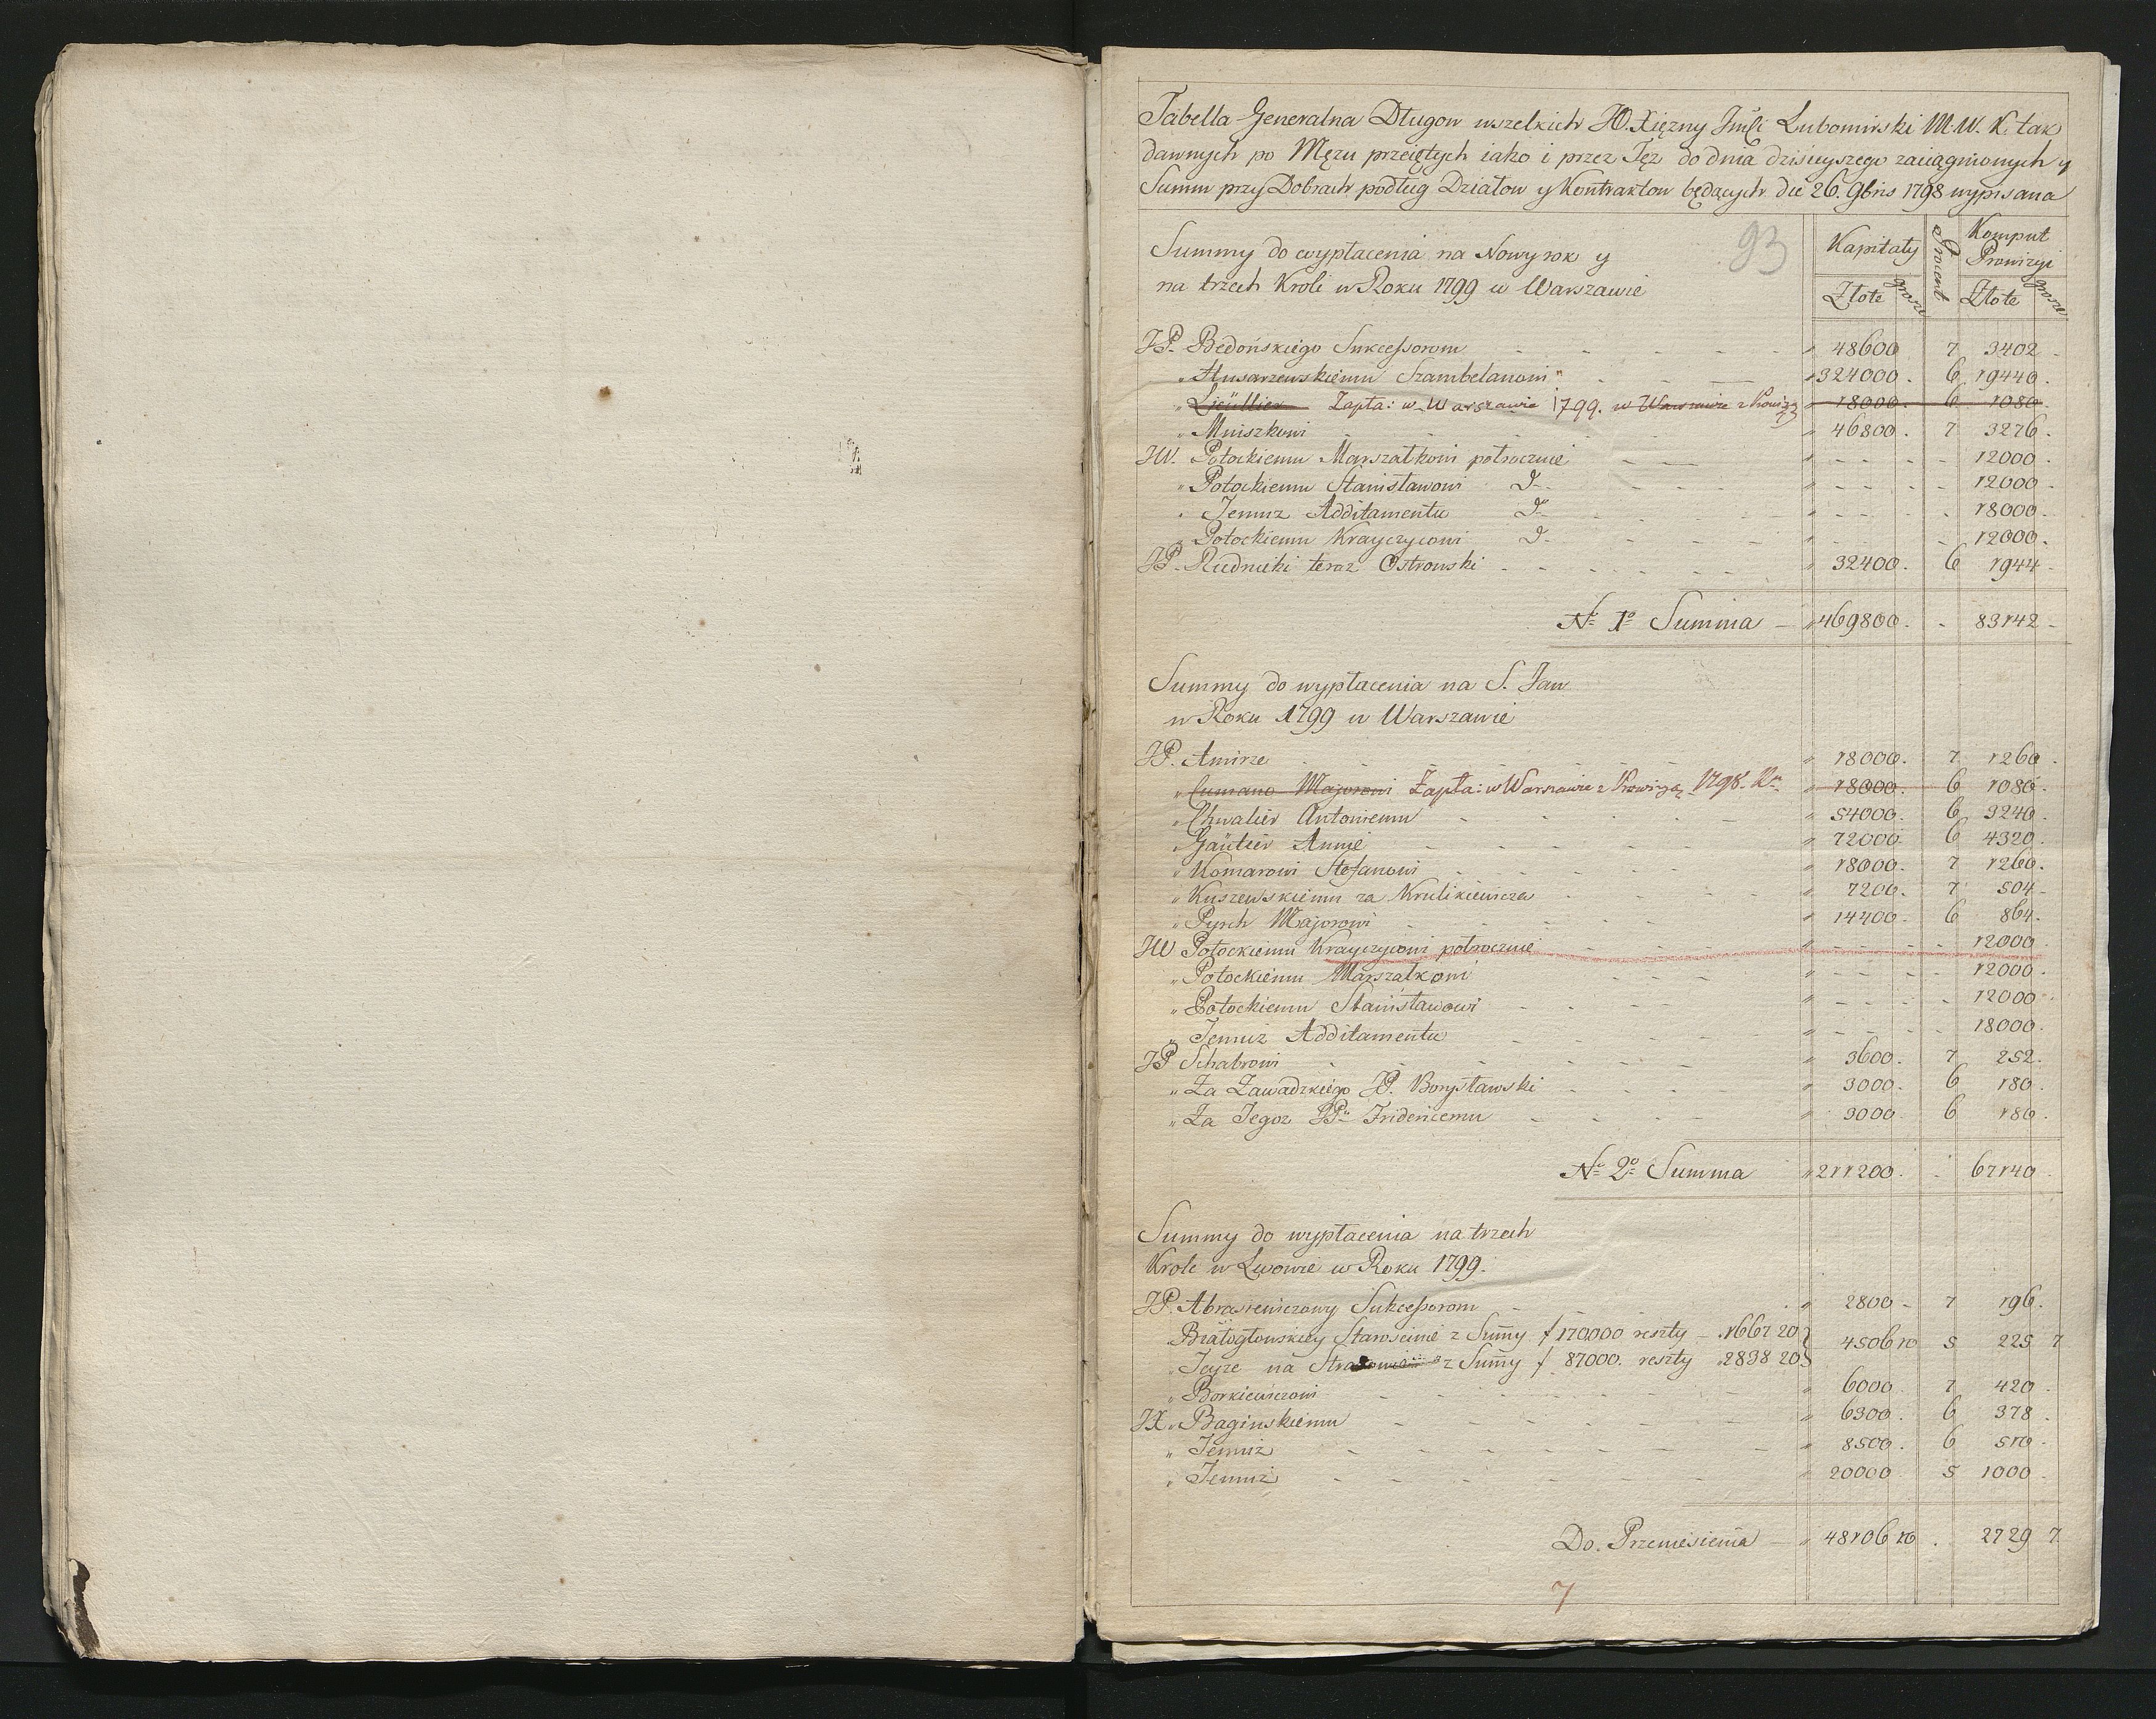 Tabella Generalna Długow wszelkich JO. Xięzny Jmći Lubomirski M. W. K. tak
dawnych po Męzu przeiętych iako i przez Tęz do dnia dzisieyszego zaciągnionych y
Summ przy Dobrach podług Działow y Kontraktow będących die 26. 9bris 1798 wypisana
93
Summy do wypłacenia na Nowy rok y
na trzech Kroli w Roku 1799 w Warszawie
Kapitały
Złote grosze
Procent
Komput Prowizyi
Złote grosze
JP. Bedońskiego Sukcessorom - - - - - " 48600 7 3402 -
" Husarzewskiemu Szambelanowi " - - - " 324000 . 6 19440 .
" Zapła: w Warszawie 1799. w Warszawie z Prowizą 18000 6 1080.
" Mniszkowi - - - - - " 46800 . 7 3276 .
JW. Potockiemu Marszałkowi połrocznie - - " - - - - 12000 .
" Potockiemu Stanisławowi Do - - - " - - - - 12000 -
" Jemuz Additamentu Do - - - " - - - - 18000 -
" Potockiemu Krayczycowi Do - - - " - - - 12000 .
JP. Rudnicki teraz Ostrowski - - - - - " 32400 . 6 1944 -
No 1o Summa - " 469800 . - 83142 -
Summy do wypłacenia na S. Jan
w Roku 1799 w Warszawie
JP. Amirze - - - - - " 18000 . 7 1260 .
" Cumano Majorowi Zapła: w Warszawie z Prowizyą 1798. Ru " 18000 . 6 1080 .
" Chwalier Antoniemu - - - - - " 54000 . 6 3240 .
" Gaütier Annie - - - - - " 72000 6 4320 .
" Komarowi Stefanowi - - - - - " 18000 . 7 1260 .
" Kuszewskiemu za Krulikiewicza - - - - " 7200 . 7 504 -
" Pyrch Majorowi - - - - - " 14400 - 6 864 .
JW Potockiemu Krayczycowi połrocznie - - - " - - - - 12000 .
" Potockiemu Marszałkowi - - - " - - - - 12000 .
" Potockiemu Stanisławowi - - - - " - - - - 12000
" Jemuz Additamentu - - - - " - - - - 18000 .
JP Schabrowi - - - - - " 3600 . 7 252 .
" Za Zawadzkiego JP. Borysławski - - - - " 3000 . 6 180 .
" Za Tegoz PPu Fridericemu - - - - " 3000 6 180 .
No 2o Summa " 211200 . . 67140 .
Summy do wypłacenia na trzech
Krole w Lwowie w Roku 1799 .
JP. Abrasiewiczowy Sukcessorom - - - " 2800 - 7 196 .
Białogłowskiey Starościnie z Sum̄y f 170000 reszty - . 1667 20 } 4506 10 5 225 7
" Teyze na z Sum̄y f 87000 . reszty " 2838 20 }
" Borkiewiczowi - - - - - " 6000 7 420 .
JX. Baginskiemu - - - - - " 6300 . 6 378 .
" Jemuz - - - - - " 8500 . 6 510 .
" Jemuz - - - - - " 20000 5 1000 .
Do. Przeniesienia - " 48106 10 . 2729 7
7